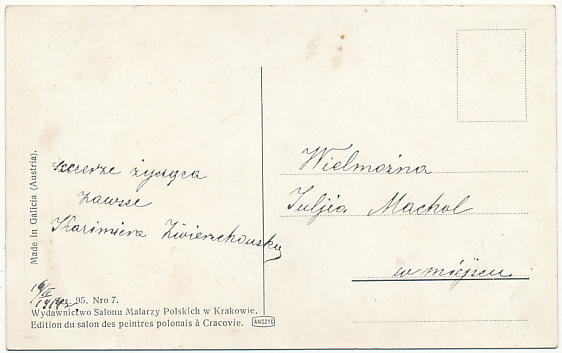 Made in Galicia (Austria).
szczerze życząca
zawsze
Kazimiera Zwierzchowska
Ser. 95. Nro 7.
Wydawnictwo Salonu Malarzy Polskich w Krakowie.
Edition du salon des peintres polonais à Cracovie.
ANCZYC
Wielmożna
Juljia Machol
w miejscu